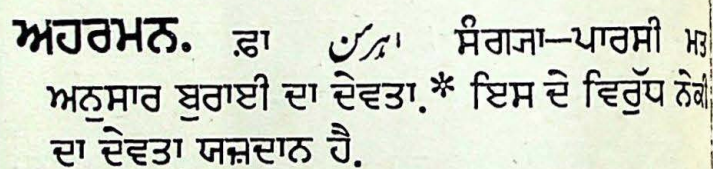 ਅਹਰਮਨ. ਫ਼ਾ اہرمن ਸੰਗ੍ਯਾ—ਪਾਰਸੀ ਮਤ
ਅਨੁਸਾਰ ਬੁਰਾਈ ਦਾ ਦੇਵਤਾ.* ਇਸ ਦੇ ਵਿਰੁੱਧ ਨੇਕੀ
ਦਾ ਦੇਵਤਾ ਯਜ਼ਦਾਨ ਹੈ.